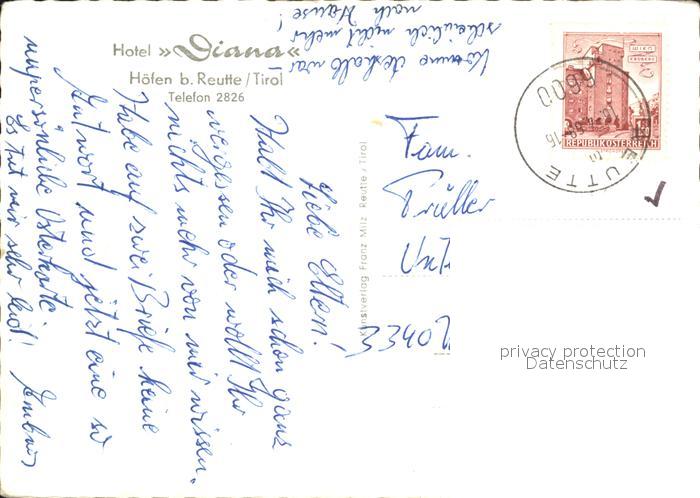 Hotel »Diana«
Höfen b. Reutte/Tirol
Telefon 2826
Liebe Eltern!
Habt Ihr mich schon ganz
vergessen oder wollt Ihr
nichts mehr von mir wissen.
Habe auf zwei Briefe keine
Antwort und jetzt eine so
unpersönliche Osterkarte.
Es tut mir sehr leid!
Komme deshalb wahr-
scheinlich nicht mehr
nach Hause!
Kunstverlag Franz Milz Reutte/Tirol
Fam.
6600
REUTTE
REPUBLIK ÖSTERREICH
privacy protection
Datenschutz